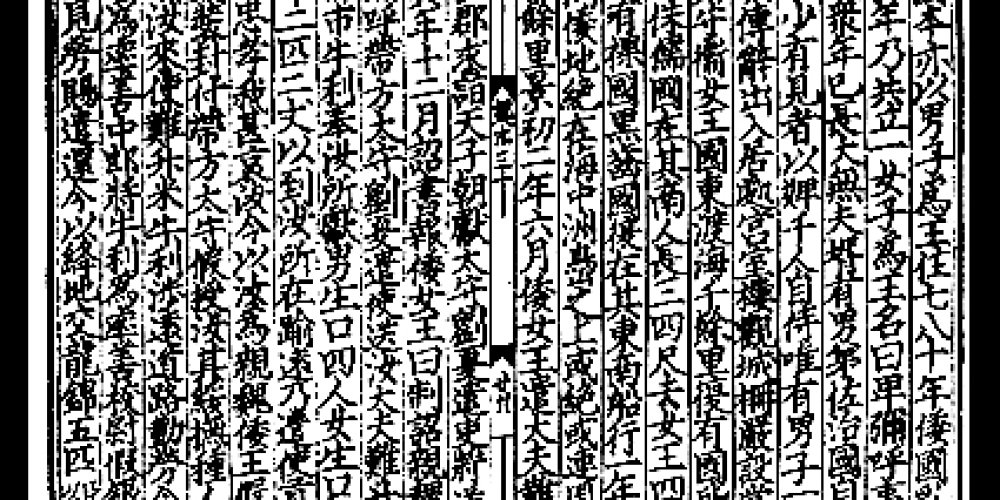 本亦以男子爲王住七八十年倭國
年乃共立一女子爲王名曰卑彌呼事
衆年已長大無夫壻有男弟佐治國
少有見者以婢千人自侍唯有男子一
傳辭出入居處宮室樓觀城柵嚴設常
女王國東渡海千餘里復有國皆
侏儒國在其南人長三四尺去女王四
有裸國黑齒國復在其東南船行一年
倭地絕在海中洲島之上或絕或連周
餘里景初二年六月倭女王遣大夫難
廿九
郡求詣天子朝獻太守劉夏遣吏將送
年十二月詔書報倭女王曰制詔親魏
呼帶方太守劉夏遣使送汝大夫難升
市牛利奉汝所獻男生口四人女生口
二匹二丈以到汝所在踰遠乃遣使貢
忠孝我甚哀汝今以汝爲親魏倭王假
裝封付帶方太守假授汝其綏撫種
汝來使難升米牛利涉遠道路勤勞今
爲率善中郎將牛利爲率善校尉假銀
見勞賜遣還今以絳地交龍錦五匹